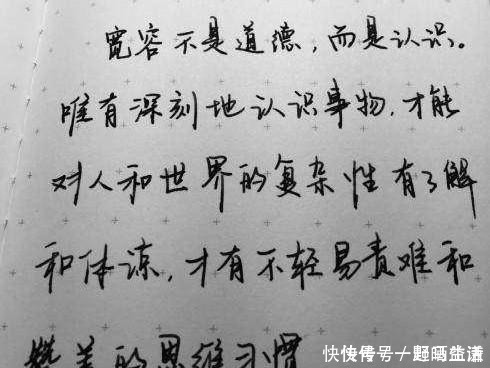 宽容不是道德,而是认识。
唯有深刻地认识事物,才能
对人和世界的复杂性有了解
和体谅,才有不轻易责难和
赞美的思维习惯
快传号